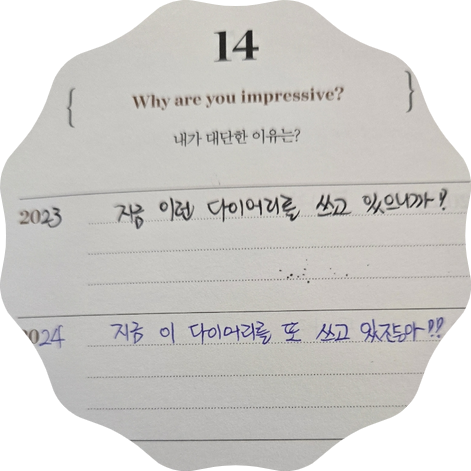 14
Why are you impressive?
내가 대단한 이유는?
2023 지금 이런 다이어리를 쓰고 있으니까?
2024 지금 이 다이어리를 또 쓰고 있잖아??